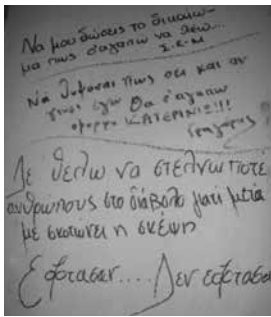 Να μου δώσεις το δικαίω-
μα πως σ'αγαπω να λέω...
Σ.Ε.Μ
Να θυμασαι πως οτι και αν
γινει εγω θα σ'αγαπαω
ομορφο ΚΑΤΕΡΙΝΙΩ!!!
Γρηγόρης
Δε θελω να στελνω ποτέ
ανθρώπους στο διάβολο γιατί μετα
με σκοτωνει η σκέψη
Εφτασαν.... Δεν εφτασα